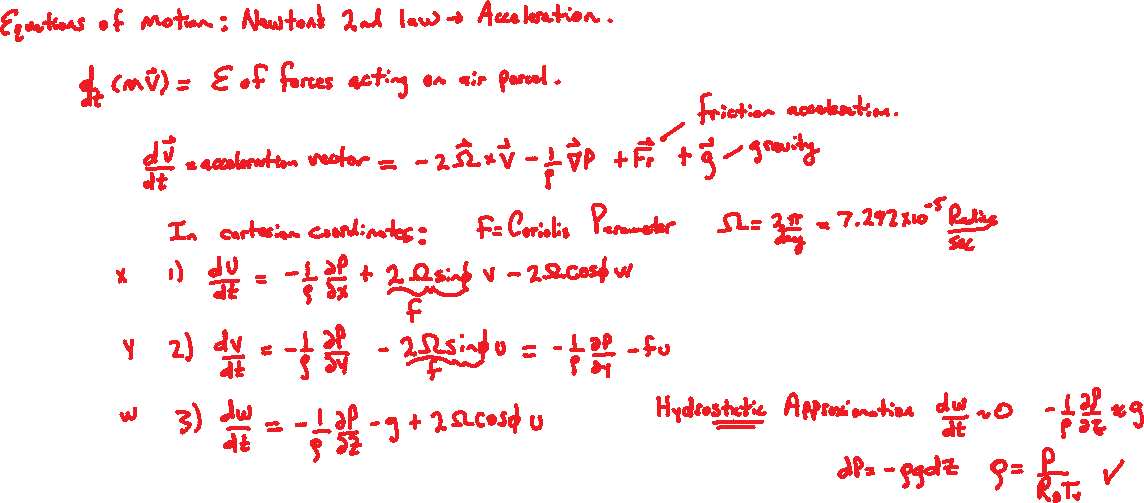 Equations of motion: Newton's 2nd law → Acceleration.
d/dt (mv⃗) = Σ of forces acting on air parcel.
friction acceleration.
dv⃗/dt = acceleration vector = -2Ω⃗ × v⃗ - 1/ρ ∇⃗P + F⃗r + g⃗ - gravity
In cartesian coordinates: f = Coriolis Parameter Ω = 2π/day = 7.292x10⁻⁵ Radians/sec
x 1) dU/dt = -1/ρ ∂P/∂x + 2Ωsinϕ v - 2Ωcosϕ w
f
y 2) dv/dt = -1/ρ ∂P/∂y - 2Ωsinϕ u = -1/ρ ∂P/∂y - fu
f
w 3) dw/dt = -1/ρ ∂P/∂z - g + 2Ωcosϕ u
Hydrostatic Approximation dw/dt ~ 0 -1/ρ ∂P/∂z ≈ g
dP = -ρgdz ρ = P/RdTv ✓